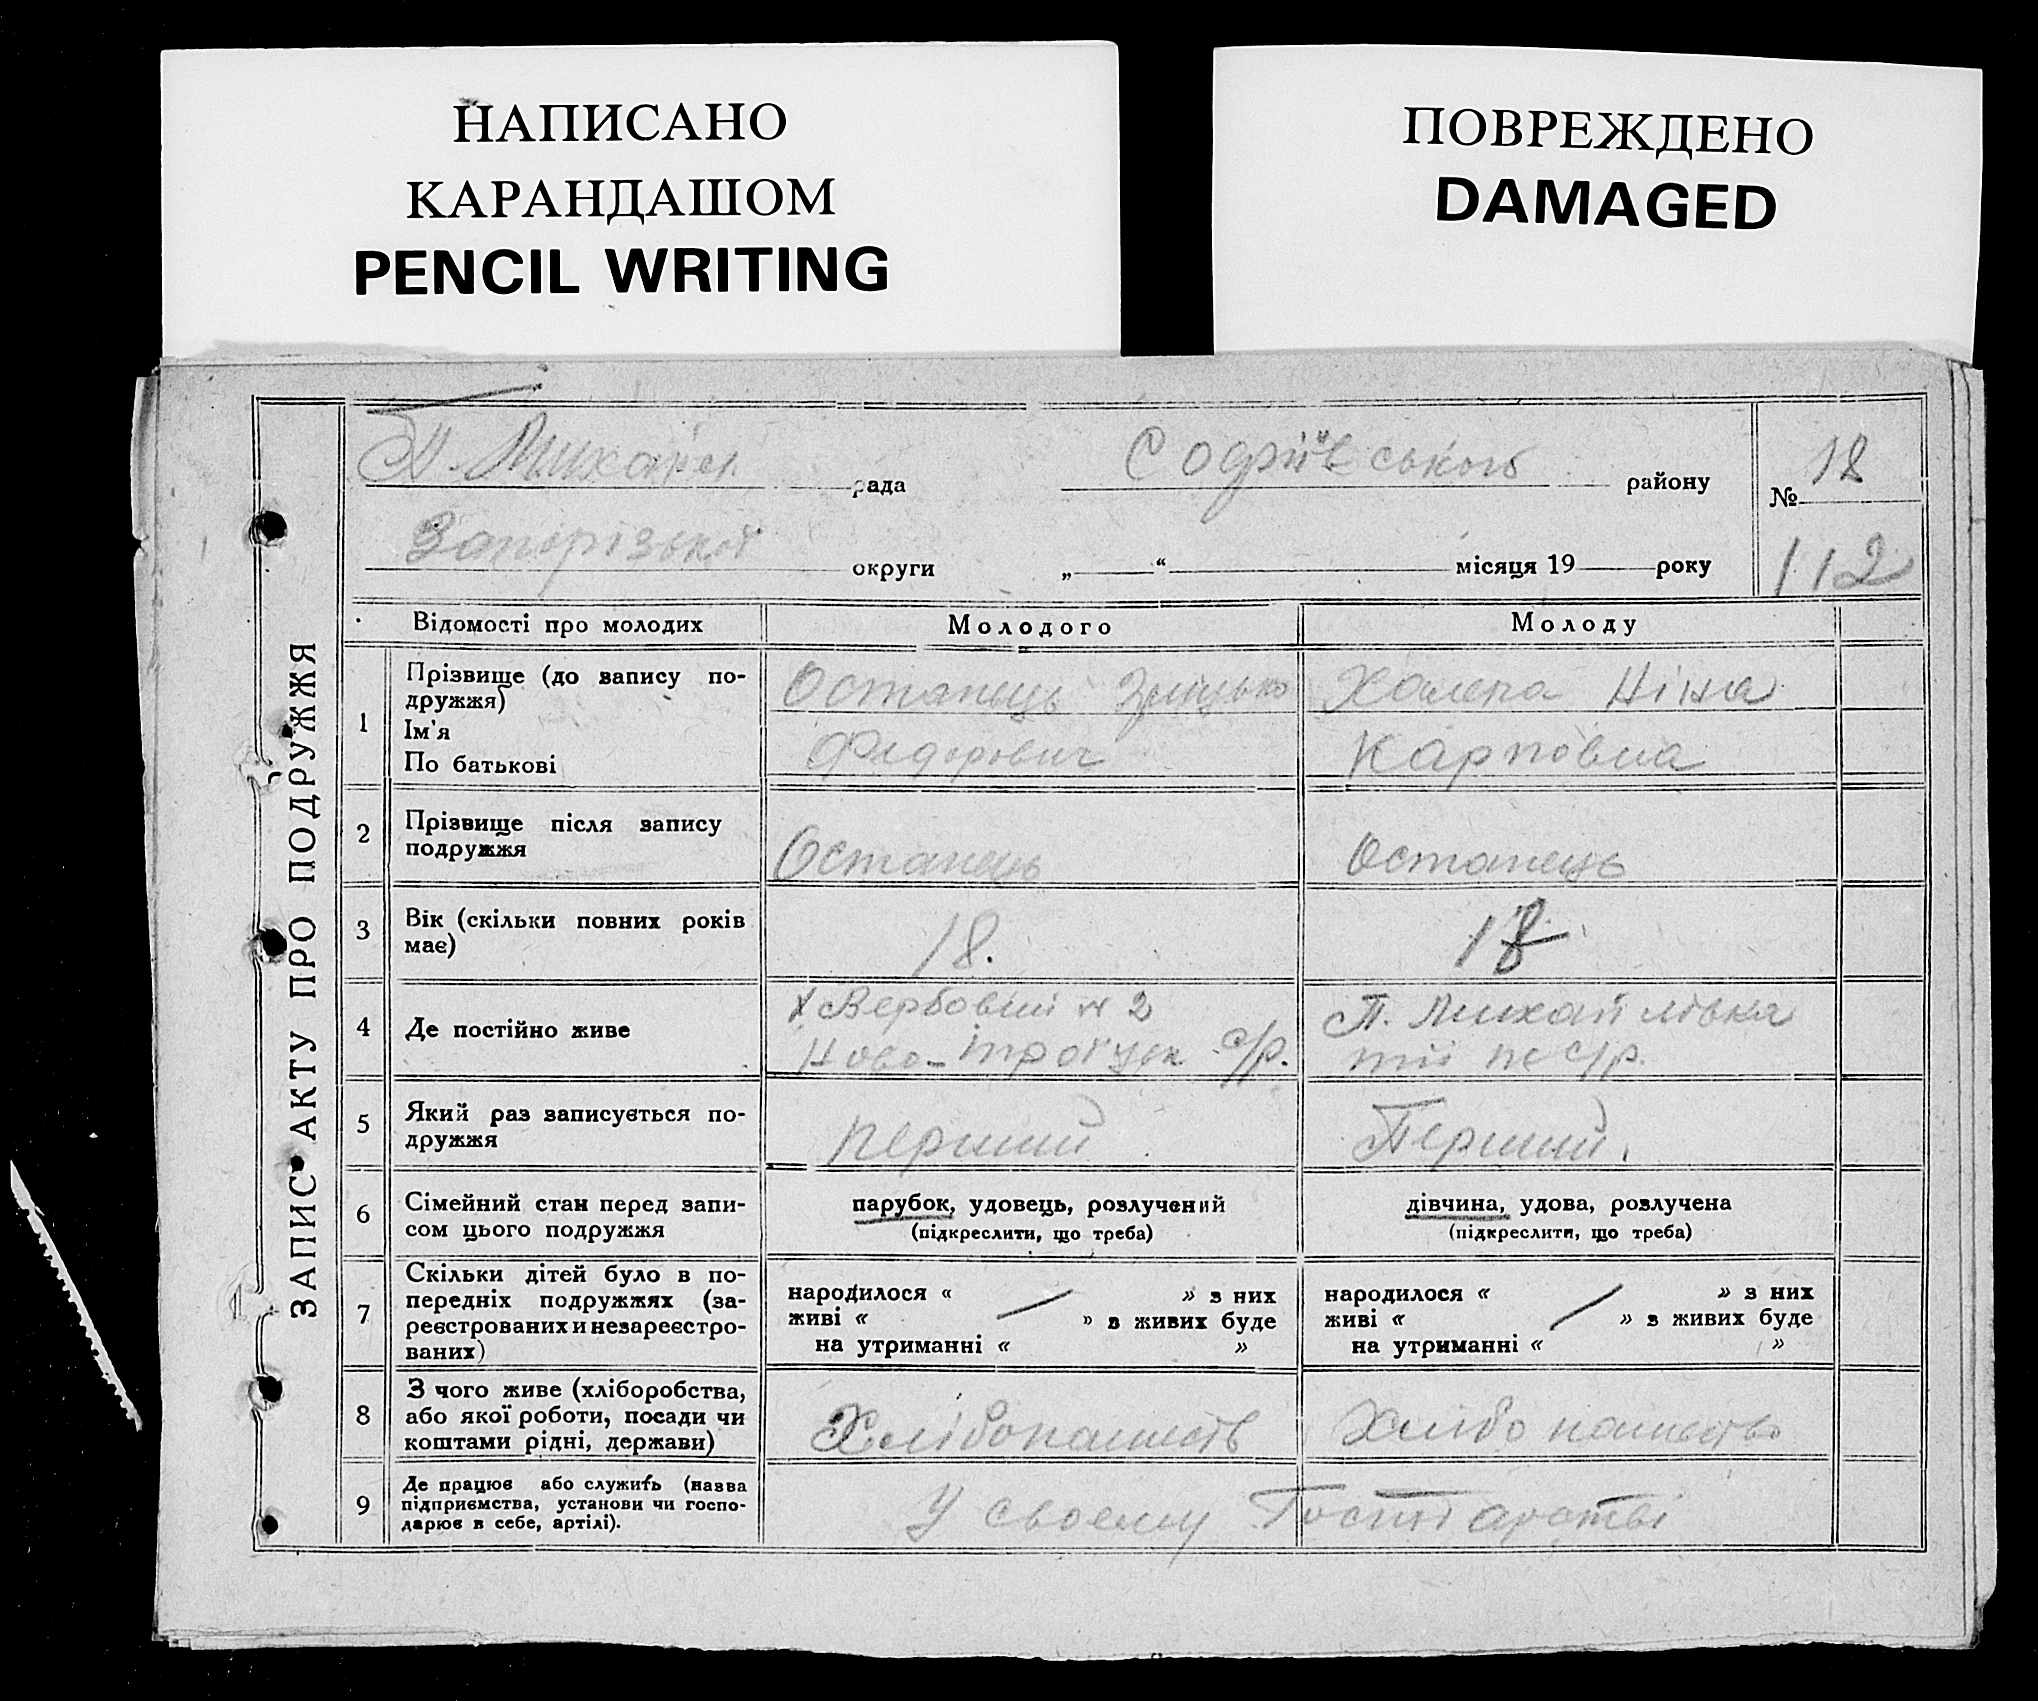 НАПИСАНО
КАРАНДАШОМ
PENCIL WRITING
ПОВРЕЖДЕНО
DAMAGED
ЗАПИС АКТУ ПРО ПОДРУЖЖЯ
П. Михайл. рада Софіївського району
№ 18
Запорізької округи „ “ місяця 19 року
112
Відомості про молодих Молодого Молоду
1 Прізвище (до запису по-
дружжя)
Ім'я
По батькові
Остапець Грицько
Федорович
Халепа Ніна
Карповна
2 Прізвище після запису
подружжя
Остапець
Остапець
3 Вік (скільки повних років
має)
18.
18
4 Де постійно живе
х Вербовий № 2
Ново-Троїцьк с/р.
П. Михайлівка
тії пе с/р.
5 Який раз записується по-
дружжя
перший
Перший.
6 Сімейний стан перед запи-
сом цього подружжя
парубок, удовець, розлучений
(підкреслити, що треба)
дівчина, удова, розлучена
(підкреслити, що треба)
7 Скільки дітей було в по-
передніх подружжях (за-
реєстрованих и незареєстро-
ваних)
народилося « » з них
живі « » з живих буде
на утриманні « »
народилося « » з них
живі « » з живих буде
на утриманні « »
8 З чого живе (хліборобства,
або якої роботи, посади чи
коштами рідні, держави)
Хлібопашеств
Хлібопашество
9 Де працює або служить (назва
підприємства, установи чи госпо-
дарює в себе, артілі).
У своєму Господарстві